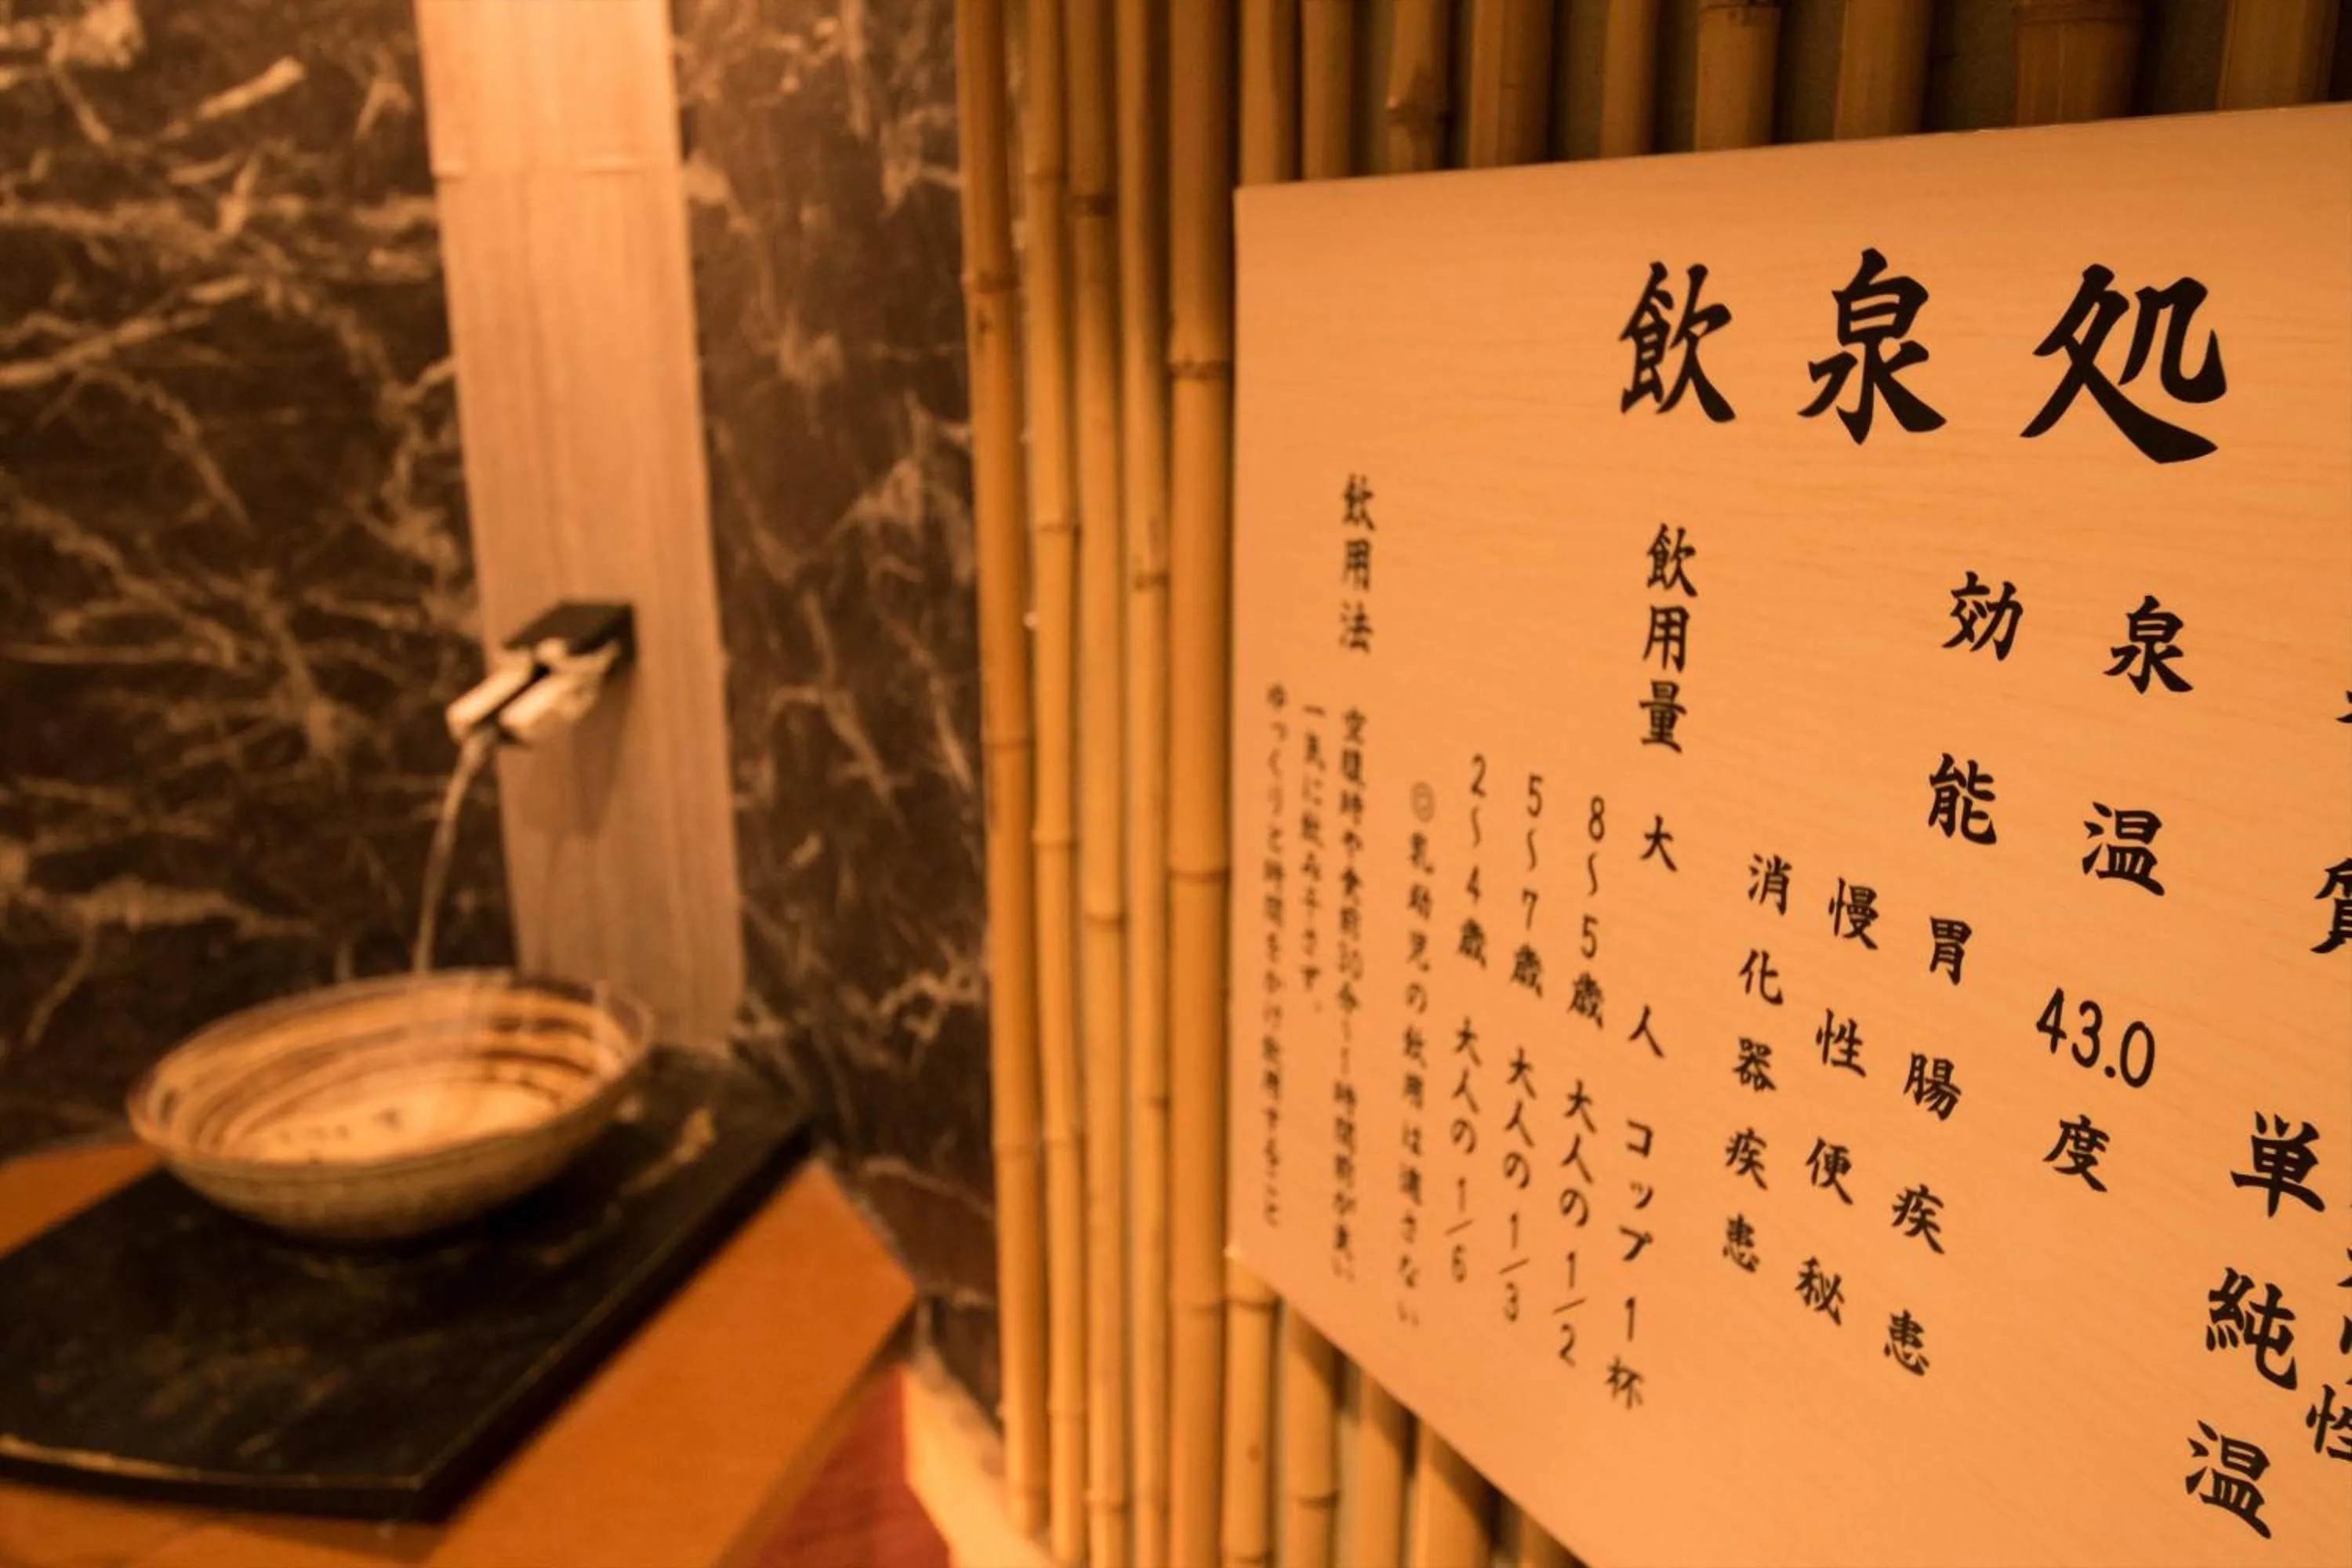 飲泉処
質
単純温
性
泉温 43.0度
効能 胃腸疾患
慢性便秘
消化器疾患
飲用量 大人 コップ1杯
8~5歳 大人の1/2
5~7歳 大人の1/3
2~4歳 大人の1/6
◎乳幼児の飲用は適さない
飲用法 空腹時や食前30分~1時間前が良い
一気に飲み干さず、
ゆっくりと時間をかけ飲用すること